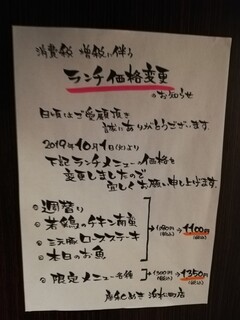 消費税 増税に伴う
ランチ価格変更
のお知らせ
日頃はご愛顧頂き
誠にありがとうございます。
2019年10月1日(火)より
下記ランチメニュー価格を
変更しましたので
宜しくお願い申し上げます。
週替り
若鶏のチキン南蛮
ロースステーキ
本日のお魚
→1100円
(税込)
限定メニュー各種
→1350円
(税込)
浜松町店